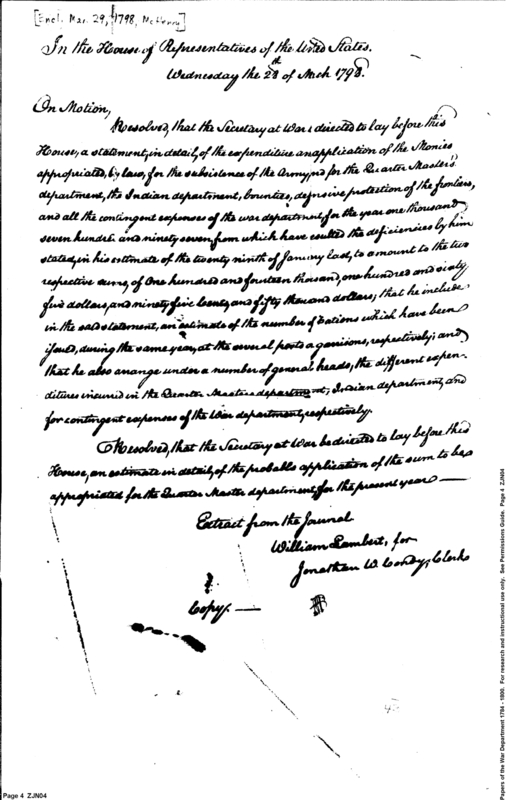 [Encl. Mar. 29, 1798, McHenry]
In the House of Representatives of the United States.
Wednesday the 28th of Mch 1798.
On Motion,
Resolved, that the Secretary at War directed to lay before this
House, a statement, in detail, of the expenditure an application of the Monies
appropriated, by laws, for the subsistence of the Army, nd for the Quarter Master's
department, the Indian department, bounties, defensive protection of the frontiers,
and all the contingent expenses of the war department, for the year one thousand
seven hundred and ninety seven, from which have resulted the deficiencies by him
stated, in his estimate of the twenty ninth of January last, to amount to the two
respective sums, of One hundred and fourteen thousand, one hundred and sixty
five dollars, and ninety five Cents, and fifty thousand dollars; that he include
in the said statement, an estimate of the number of Rations which have been
issued, during the same year, at the several posts garrisons, respectively; and
that he also arrange under a number of general heads, the different expen-
ditures incurred in the Quarter Masters department, Indian department, and
for contingent expenses of the War department, respectively.
Resolved, that the Secretary at War be directed to lay before this
House, an estimate in detail, of the probable application of the sum to be
appropriated for the Quarter Master department, for the present year —
Extract from the Journal
William Lambert, for
Jonathan W. Condy, Clerk
Copy. —
Page 4 ZJN04
Papers of the War Department 1784 - 1800. For research and instructional use only. See Permissions Guide. Page 4 ZJN04